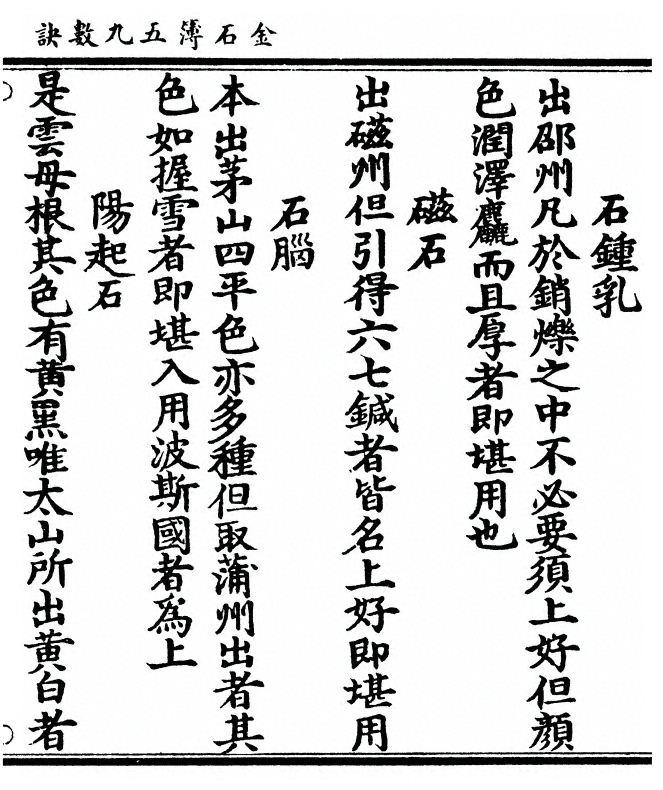 金石簿五九數訣
石鍾乳
出邵州凡於銷爍之中不必要須上好但顏
色潤澤麤而且厚者即堪用也
磁石
出磁州但引得六七鍼者皆名上好即堪用
石腦
本出茅山四平色亦多種但取蒲州出者其
色如握雪者即堪入用波斯國者為上
陽起石
是雲母根其色有黃黑唯太山所出黃白者